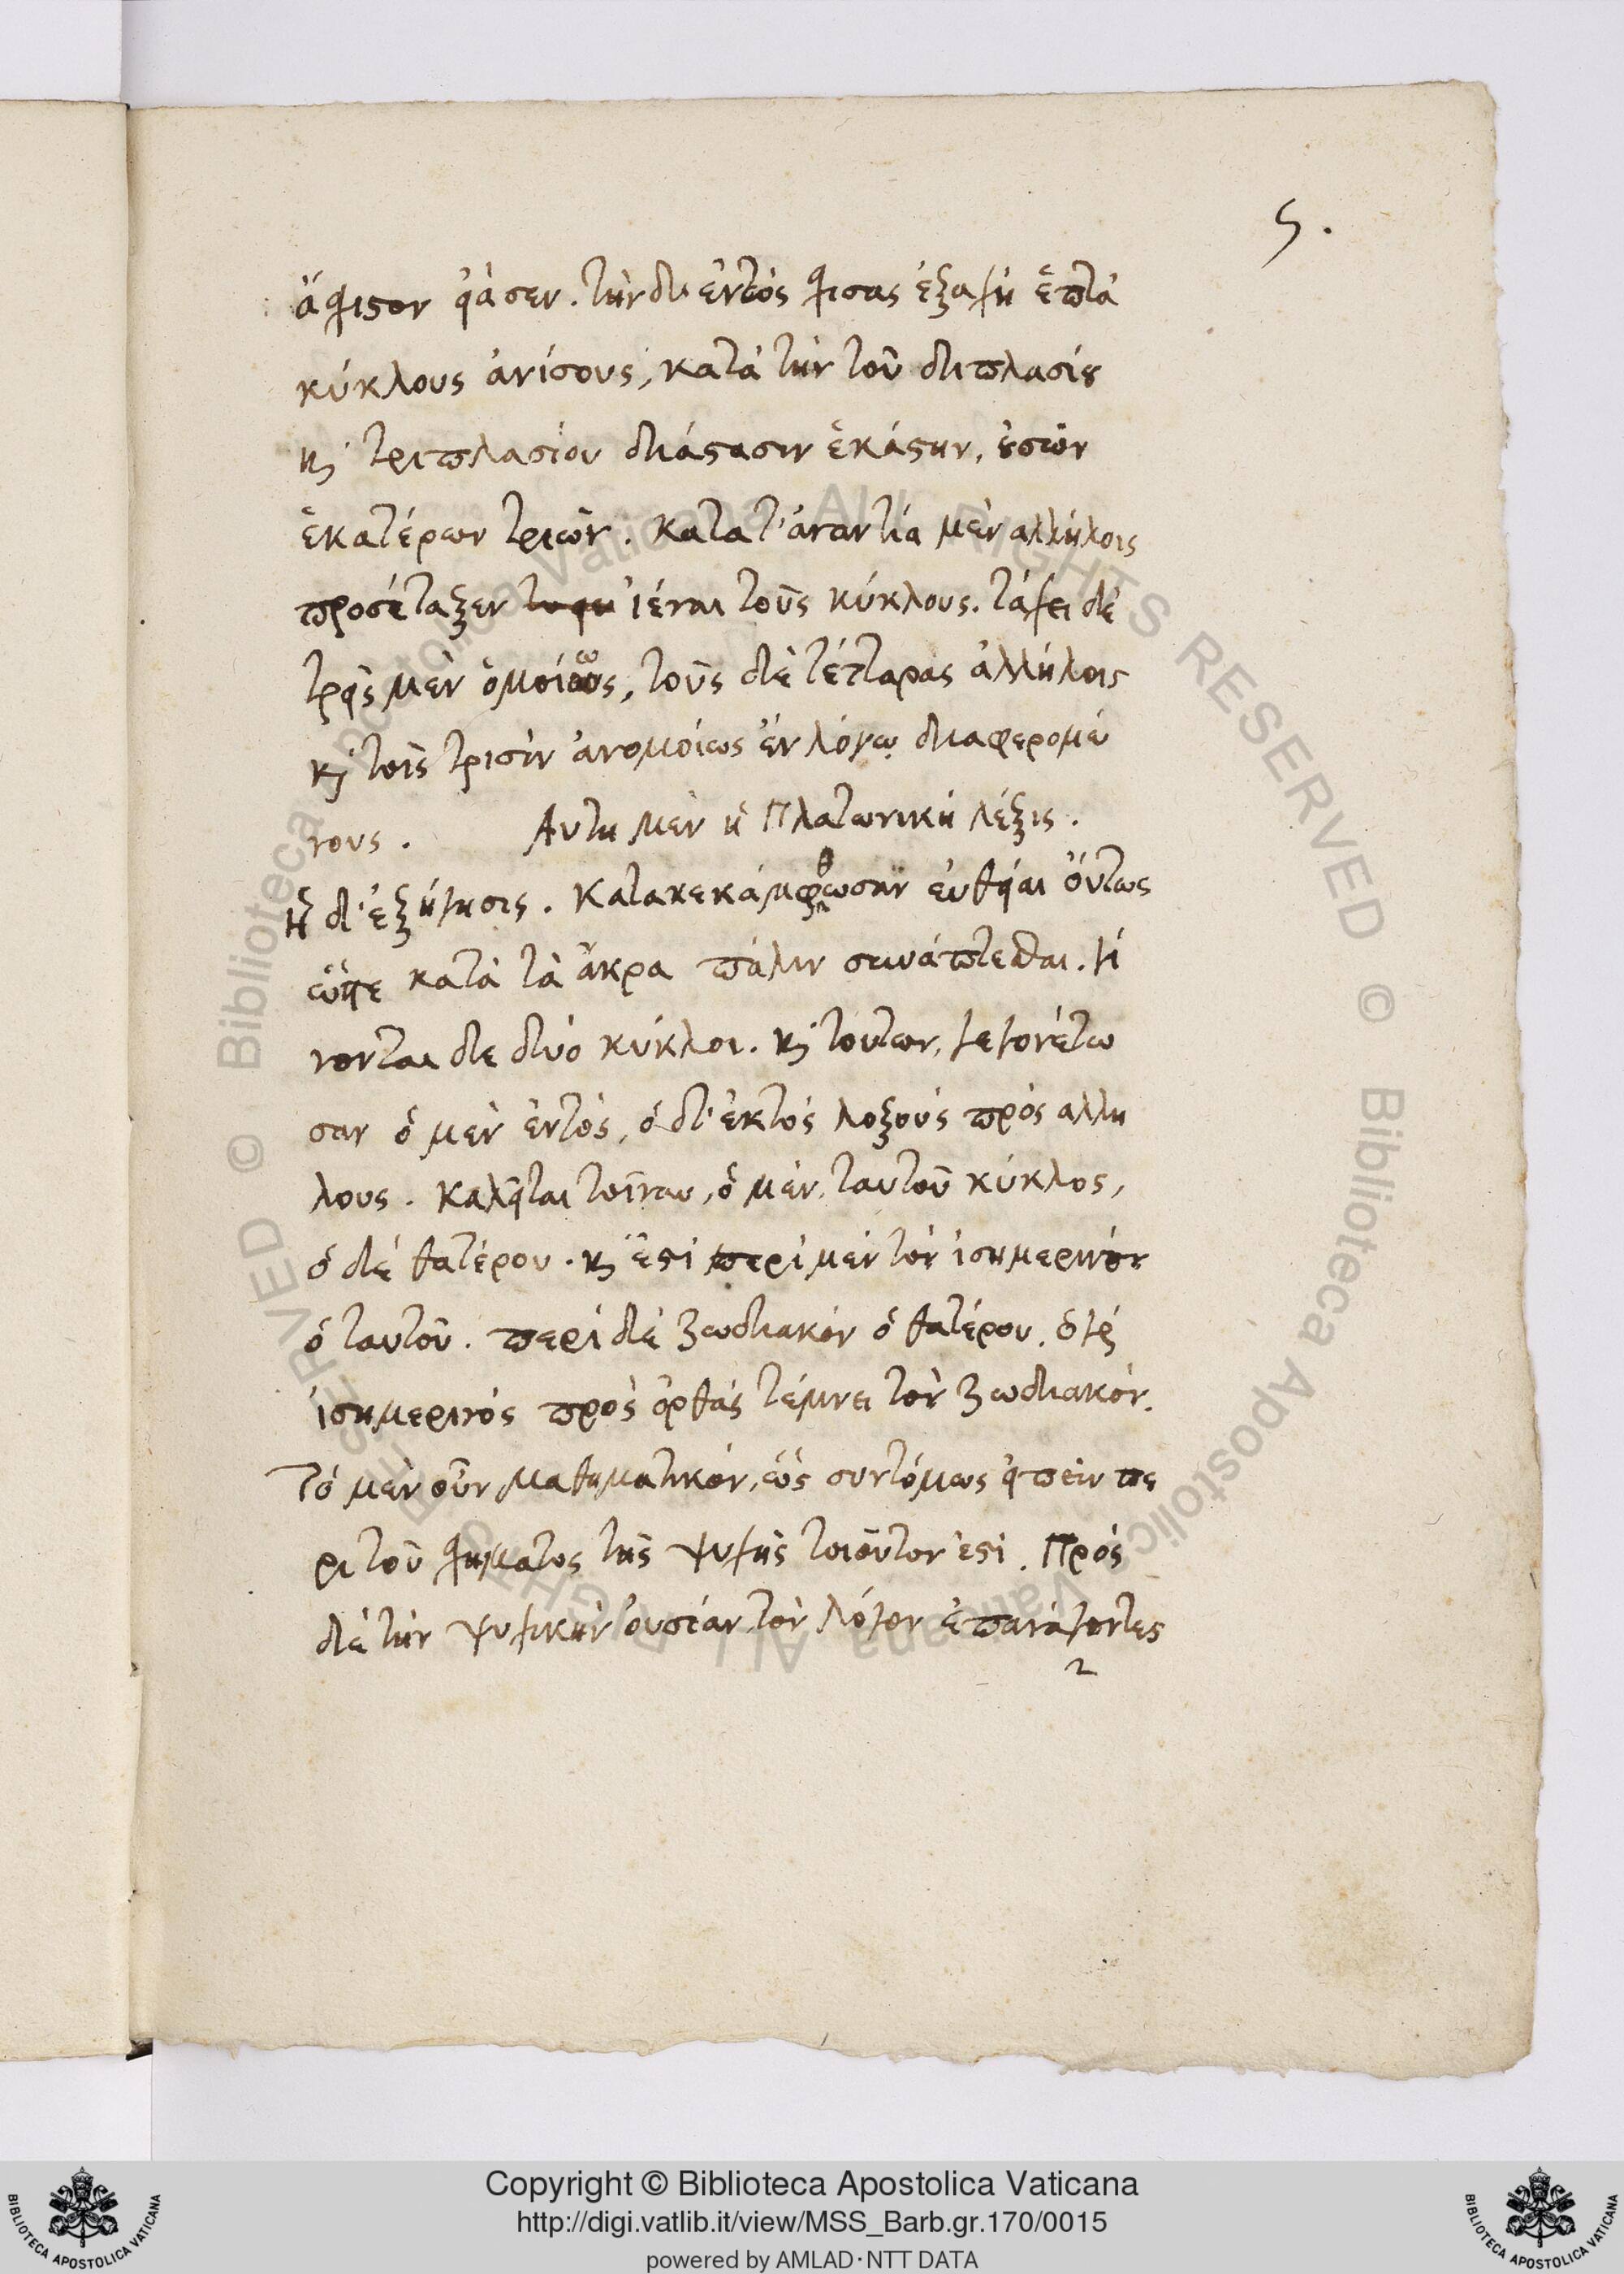 ς.
ἄσχιστον εἴασεν. τὴν δ' ἐντὸς σχίσας ἑξαχῆ ἑπτὰ
κύκλους ἀνίσους, κατὰ τὴν τοῦ διπλασίου
καὶ τριπλασίου διάστασιν ἑκάστην, οὐσῶν
ἑκατέρων τριῶν. κατὰ τ' ἀναντία μὲν αλλήλοις
προσέταξεν ἰέναι τοὺς κύκλους. τάχει δὲ
τρεῖς μὲν ὁμοίως, τοὺς δὲ τέτταρας ἀλλήλοις
καὶ τοῖς τρισὶν ἀνομοίως ἐν λόγῳ διαφερομέ
νους. Αυτη μὲν ἡ Πλατωνικὴ λέξις.
Ἡ δ' ἐξήγησις. Κατακεκάμφθωσαν ευθεῖαι οὕτως
ὥστε κατὰ τὰ ἄκρα πάλιν συνάπτεσθαι. γί
νονται δε δύο κύκλοι. καὶ τουτων, γεγονέτω
σαν ὁ μὲν ἐντὸς, ὁ δ' ἐκτὸς λοξοὺς πρὸς αλλη
λους. Καλεῖται τοίνυν, ὁ μὲν, ταυτοῦ κύκλος,
ὁ δὲ θατέρου. καὶ ἔστι περὶ μὲν τὸν ἰσημερινὸν
ὁ ταυτοῦ. περὶ δὲ ζωδιακὸν ὁ θατέρου. ὁ γὰρ
ἰσημερινὸς πρὸς ὀρθὰς τέμνει τὸν ζωδιακόν.
Τὸ μὲν οὖν μαθηματικὸν, ὡς συντόμως εἰπεῖν πε
ρι τοῦ σχήματος τῆς ψυχῆς τοιοῦτον ἐστί. Πρὸς
δὲ τὴν ψυχικὴν οὐσίαν τὸν λόγον ἐπανάγοντες
2
Copyright © Biblioteca Apostolica Vaticana
http://digi.vatlib.it/view/MSS_Barb.gr.170/0015
powered by AMLAD·NTT DATA
BIBLIOTECA APOSTOLICA VATICANA
BIBLIOTECA APOSTOLICA VATICANA
© Biblioteca Apostolica Vaticana ALL RIGHTS RESERVED
© Biblioteca Apostolica Vaticana ALL RIGHTS RESERVED